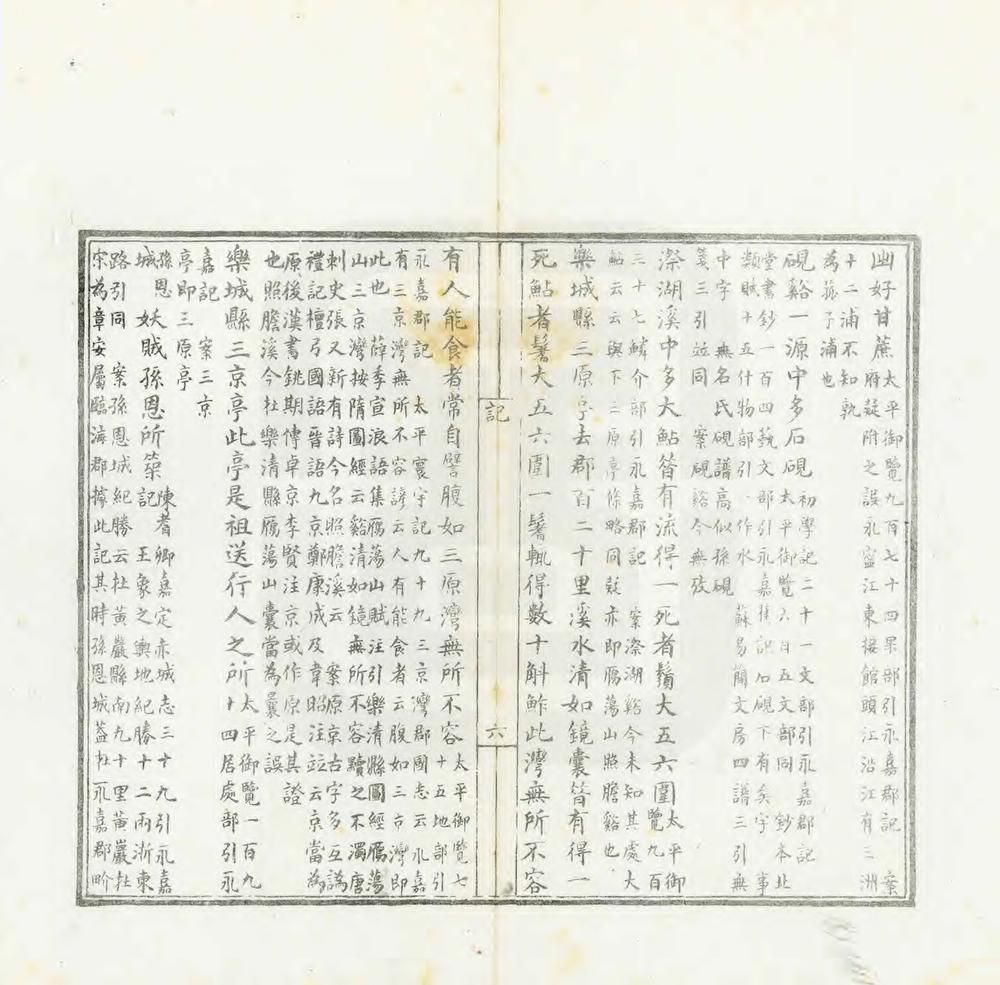 幽好甘蔗太平御覽九百七十四果部引永嘉郡記 案
府疑附之誤永寧江東接館頭江沿江有三洲
十二浦不知孰
為菰子浦也
硯谿一源中多石硯初學記二十一文部引永嘉郡記
太平御覽六百五文部同鈔本北
堂書鈔一百四藝文部引永嘉 硯下有矣字事
類賦十五什物部引作水 蘇易簡文房四譜三引無
中字 無名氏硯譜高似孫硯
箋三引竝同 案硯谿今無攷
溹湖溪中多大鮎皆有流得一死者鬚大五六圍太平御
覽九百
三十七鱗介部引永嘉郡記 案溹湖谿今未知其處大
鮎云云與下三原亭條略同疑亦即雁蕩山照膽谿也
樂城縣三原亭去郡百二十里溪水清如鏡囊皆有得一
死鮎者鬐大五六圍一鬐輒得數十斛鮓此灣無所不容
記
六
有人能食者常自譬腹如三原灣無所不容太平御覽七
十五地部引
永嘉郡記 太平寰宇記九十九三京灣郡國志云永嘉
有三京灣無所不容諺云人有能食者云腹如三京灣即
此也 薛季宣浪語集雁蕩山賦注引樂清縣圖經雁蕩
山三京灣按隋圖經云谿清如鏡無所不容黷之不濁唐
刺史張又新有詩今名照膽溪云 案原京古字多互譌
禮記檀弓國語晉語九京鄭康成及韋昭注竝云京當為
原後漢書銚期傳卓京李賢注京或作原是其證
也照膽溪今杜樂清縣雁蕩山囊當為曩之誤
樂城縣三京亭此亭是祖送行人之所太平御覽一百九
十四居處部引永
嘉記 案三京
亭即三原亭
孫恩妖賊孫恩所築陳耆卿嘉定赤城志三十九引永嘉
城 記 王象之輿地紀勝十二兩浙東
路引同 案孫恩城紀勝云杜黃巖縣南九十里黃巖杜
宋為章安屬臨海郡據此記其時孫恩城蓋杜永嘉郡畍